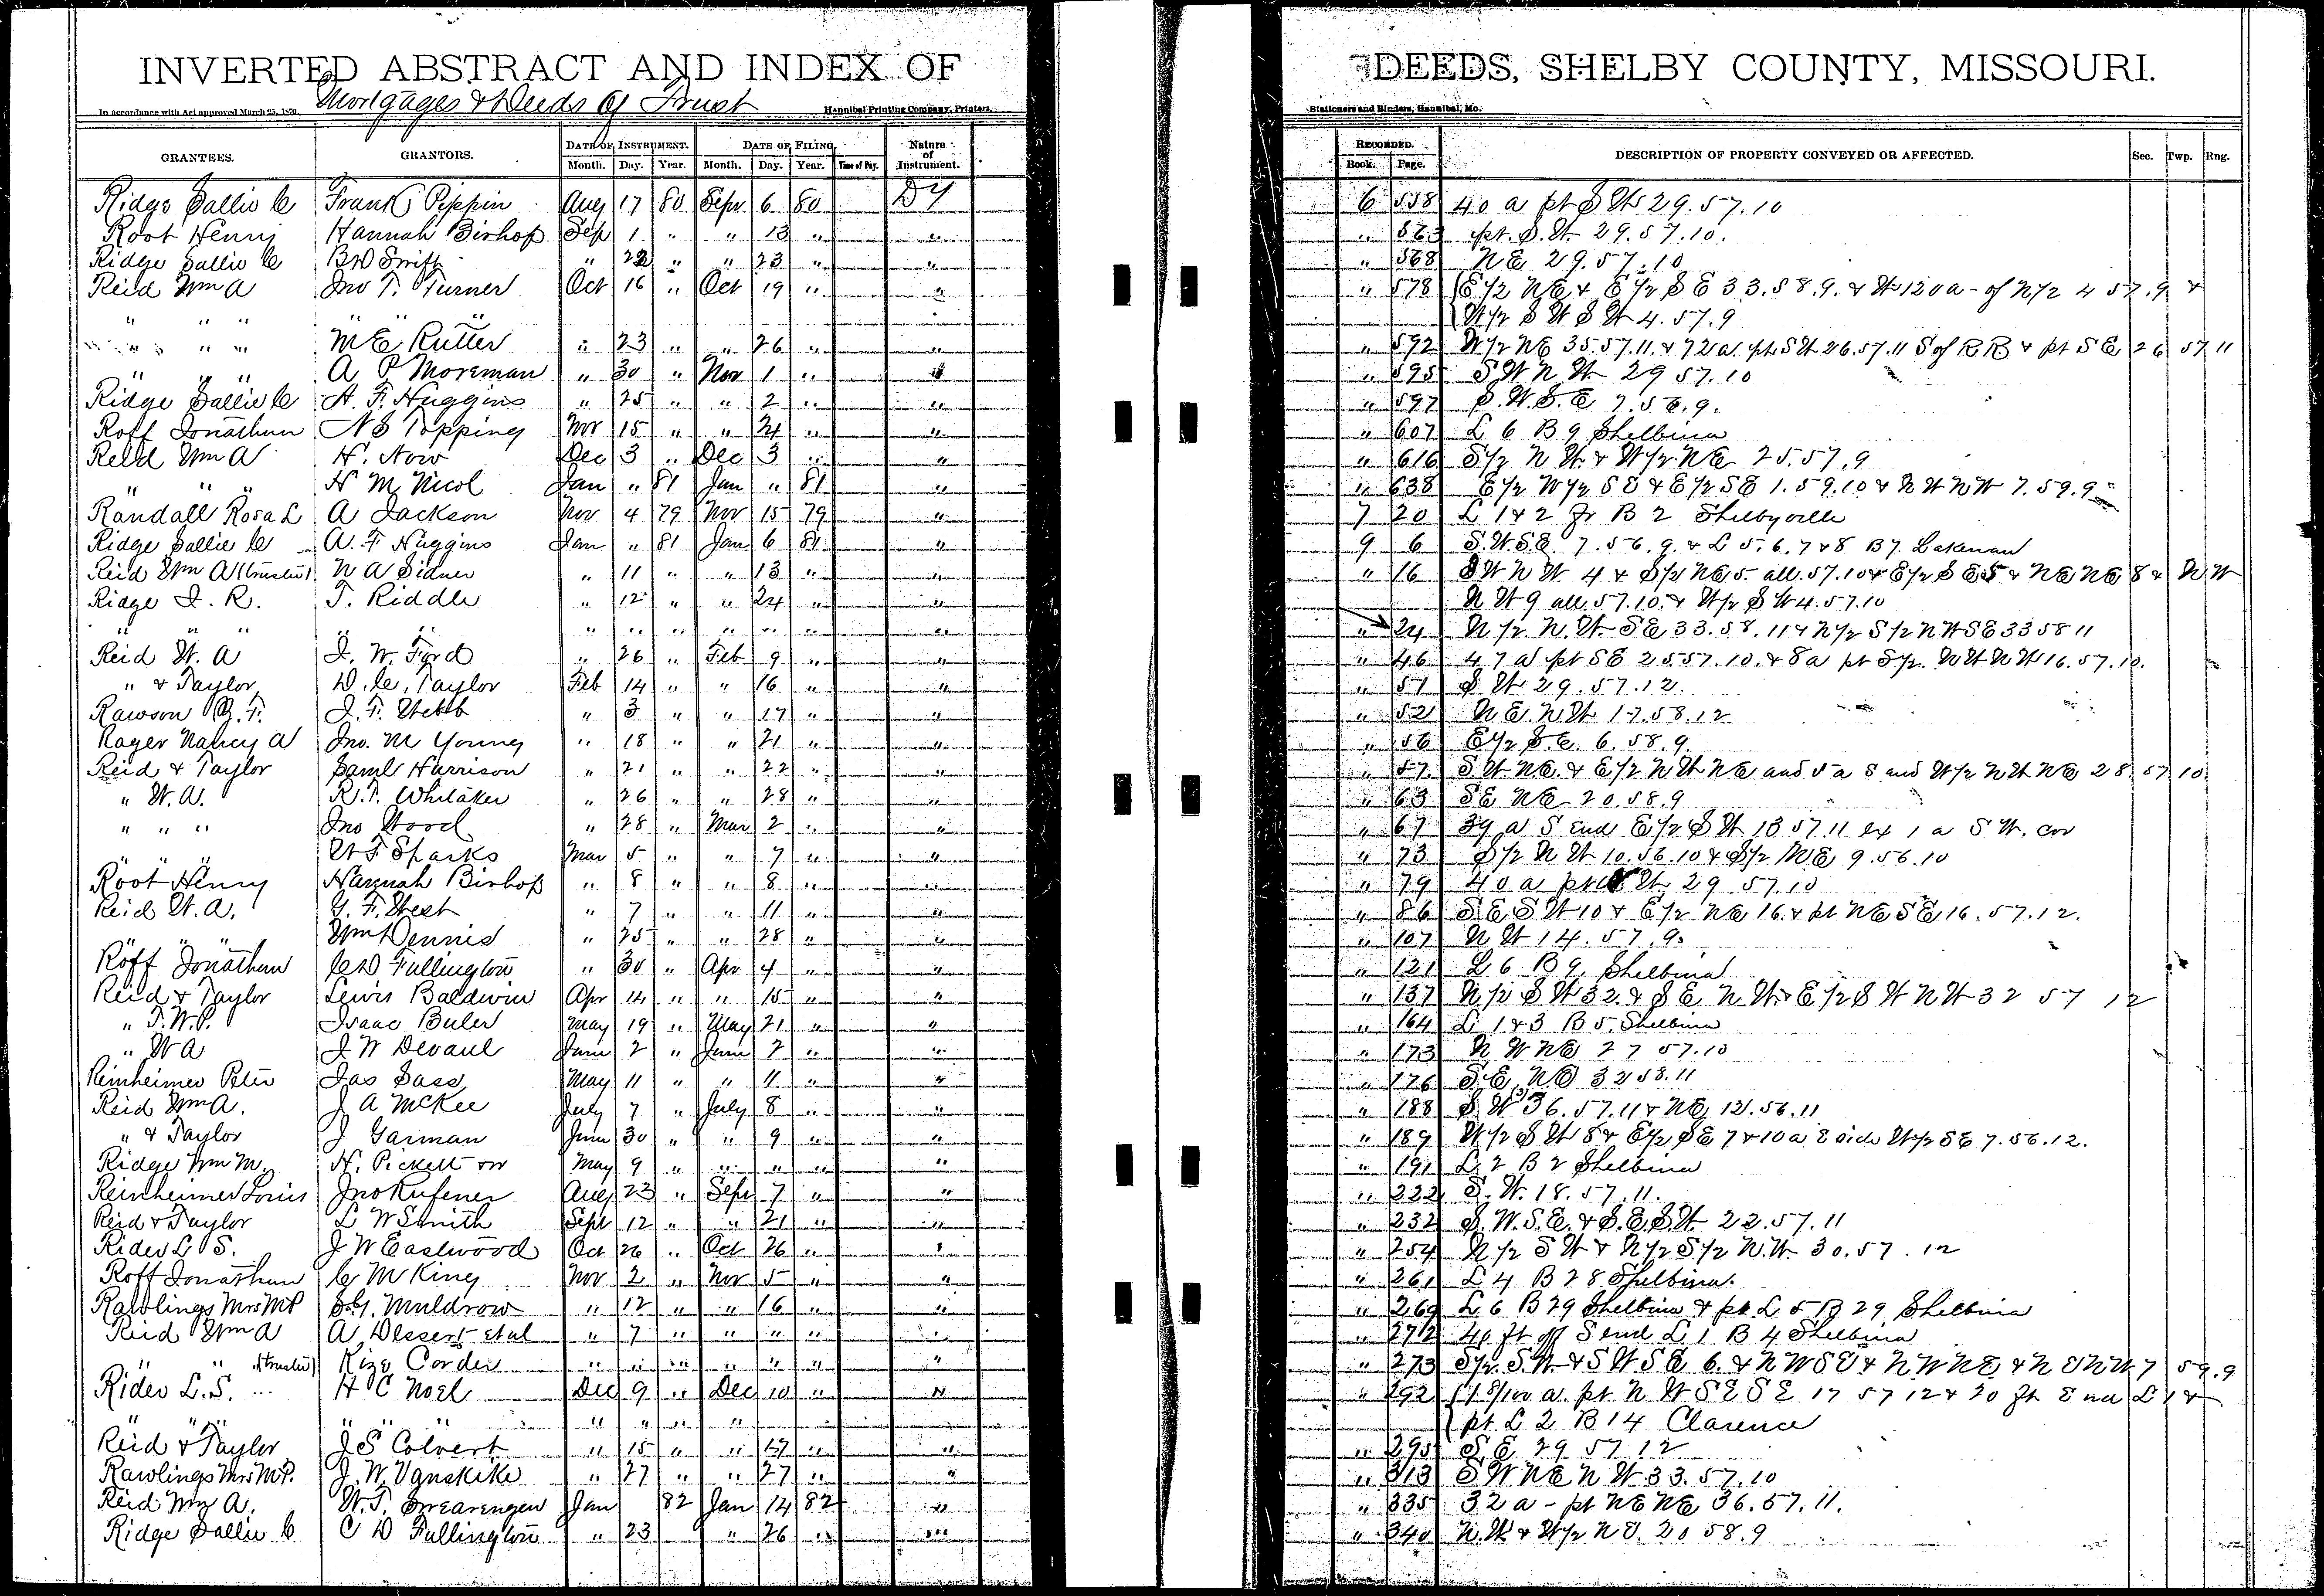 INVERTED ABSTRACT AND INDEX OF DEEDS, SHELBY COUNTY, MISSOURI.
Mortgages & Deeds of Trust
In accordance with Act approved March 25, 1870. Hannibal Printing Company, Printers, Stationers and Binders, Hannibal, Mo.
GRANTEES. GRANTORS. DATE OF INSTRUMENT. DATE OF FILING Nature of Instrument. RECORDED. DESCRIPTION OF PROPERTY CONVEYED OR AFFECTED. Sec. Twp. Rng.
Month. Day. Year. Month. Day. Year. Time of Day. Book. Page.
Ridge Sallie C Frank Pippin Aug 17 80 Sepr 6 80 DT 6 558 40 a pt S W 29.57.10
Root Henry Hannah Bishop Sep 1 " " 13 " " " 563 pt. S.W. 29.57.10.
Ridge Sallie C B D Smith " 22 " " 23 " " " 568 NE 29.57.10
Reid Wm A Jno T. Turner Oct 16 " Oct 19 " " " 578 E 1/2 NE & E 1/2 S E 33.58.9. & W 120 a - of N 1/2 4 57.9 &
" " " " W 1/2 S W S W 4.57.9
" " " M E Rutter " 23 " " 26 " " " 592 W 1/2 NE 35.57.11. & 72 a. pt S W 26.57.11 S of R R & pt S E 26 57 11
" " " A P Moreman " 30 " Nov 1 " " " 595 S W N W 29 57.10
Ridge Sallie C A. F. Huggins " 25 " " 2 " " " 597 S.W.S.E 7.56.9.
Roff Jonathan N S Topping Nov 15 " " 24 " " " 607 L 6 B 9 Shelbina
Reid Wm A H. Now Dec 3 " Dec 3 " " " 616 S 1/2 N W & W 1/2 NE 25.57.9
" " " H M Nicol Jan " 81 Jan " 81 " " 638 E 1/2 W 1/2 S E & E 1/2 S E 1.59.10 & N W N W 7.59.9
Randall Rosa L A Jackson Nov 4 79 Nov 15 79 " 7 20 L 1 & 2 Fr B 2 Shelbyville
Ridge Sallie C A. F. Huggins Jan " 81 Jan 6 81 " 9 6 S.W.S.E. 7.56.9. & L 5.6.7 & 8 B 7. Lakenan
Reid Wm A (trustee) N A Sidner " 11 " " 13 " " " 16 S W N W 4 & S 1/2 NE 5. all 57.10 & E 1/2 S E 5 & NE NE 8 & N W
Ridge J. R. T. Riddle " 12 " " 24 " " N W 9 all 57.10. & W 1/2 S W 4.57.10
" " " " " " " " " " " " 24 N 1/2 N.W. SE 33.58.11 & N 1/2 S 1/2 N W S E 33 58 11
Reid W. A J. W. Ford " 26 " Feb 9 " " " 46 47 a pt SE 25.57.10. & 8 a pt S 1/2 N W N W 16.57.10.
" & Taylor D. C. Taylor Feb 14 " " 16 " " " 51 S W 29.57.12.
Rawson J. F. Webb " 3 " " 17 " " " 52 N E N W 17.58.12
Rager Nancy A Jno. M Young " 18 " " 21 " " " 56 E 1/2 S.E. 6.58.9.
Reid & Taylor Saml Harrison " 21 " " 22 " " " 57 S W NE. & E 1/2 N W NE and 5 a S end W 1/2 N W NE 28 57 10
" W. A. R. T. Whitaker " 26 " " 28 " " " 63 SE NE 20.58.9
" " " Jno Wood " 28 " Mar 2 " " " 67 39 a S end E 1/2 S W 13 57.11 ex 1 a S W. cor
W F Sparks Mar 5 " " 7 " " " 73 S 1/2 N W 10.56.10 & S 1/2 NE 9.56.10
Root Henry Hannah Bishop " 8 " " 8 " " " 79 40 a pt W 29.57.10
Reid W. A. G. F. West " 7 " " 11 " " " 86 S E S W 10 & E 1/2 NE 16. & pt NE SE 16.57.12.
" " " Wm Dennis " 25 " " 28 " " " 107 N W 14.57.9.
Roff Jonathan C D Fullington " 30 " Apr 4 " " " 121 L 6 B 9 Shelbina
Reid & Taylor Lewis Baldwin Apr 14 " " 15 " " " 137 N 1/2 S W 32. & S E N W. & E 1/2 S W N W 32 57 12
" T. W. P. Isaac Buler May 19 " May 21 " " " 164 L 1 & 3 B 5. Shelbina
" W A J W Devaul June 2 " June 2 " " " 173 N W NE 27 57.10
Reinheimer Peter Jas Sass May 11 " " 11 " " " 176 S.E. NE 32 58.11
Reid Wm A. J A McKee July 7 " July 8 " " " 188 S W 36.57.11 & NE 12.56.11
" & Taylor J Garman June 30 " " 9 " " " 189 W 1/2 S W 8 & E 1/2 SE 7 & 10 a E side W 1/2 SE 7.56.12.
Ridge Wm M. H. Pickett May 9 " " " " " " 191 L 2 B 2 Shelbina
Reinheimer Louis Jno Rufener Aug 23 " Sepr 7 " " " 222 S.W. 18.57.11.
Reid & Taylor L W Smith Sept 12 " " 21 " " " 232 S.W.S.E. & S.E.S.W. 22.57.11
Rider L S. J W Eastwood Oct 26 " Oct 26 " " " 254 N 1/2 S W & N 1/2 S 1/2 N.W. 30.57.12
Roff Jonathan C M King Nov 2 " Nov 5 " " " 261 L 4 B 28 Shelbina.
Rawlings Mrs M P S. G. Muldrow " 12 " " 16 " " " 269 L 6 B 29 Shelbina & pt L 5 B 29 Shelbina
Reid Wm A A Dessert et al " 7 " " " " " " 272 40 ft off S end L 1 B 4 Shelbina
" " (trustee) Corder " " " " " " " " 273 S 1/2 S.W. & S W S E 6. & N W S E & N W NE & N E N W 7 59.9
Rider L. S. H C Noel Dec 9 " Dec 10 " " " 292 pt N W S E S E 17 57 12 & 20 ft E end L 1 &
" " " " " " " pt L 2 B 14 Clarence
Reid & Taylor J S Colvert " 15 " " 17 " " " 295 S E 29 57 12
Rawlings Mrs M P. J. W. Vanskike " 27 " " 27 " " " 313 S W NE N W 33.57.10
Reid Wm A. W. T. Swearengen Jan 82 Jan 14 82 " " 335 32 a - pt NE NE 36.57.11.
Ridge Sallie C C D Fullington " 23 " 26 " " " 340 N.W. & W 1/2 N E. 20 58.9